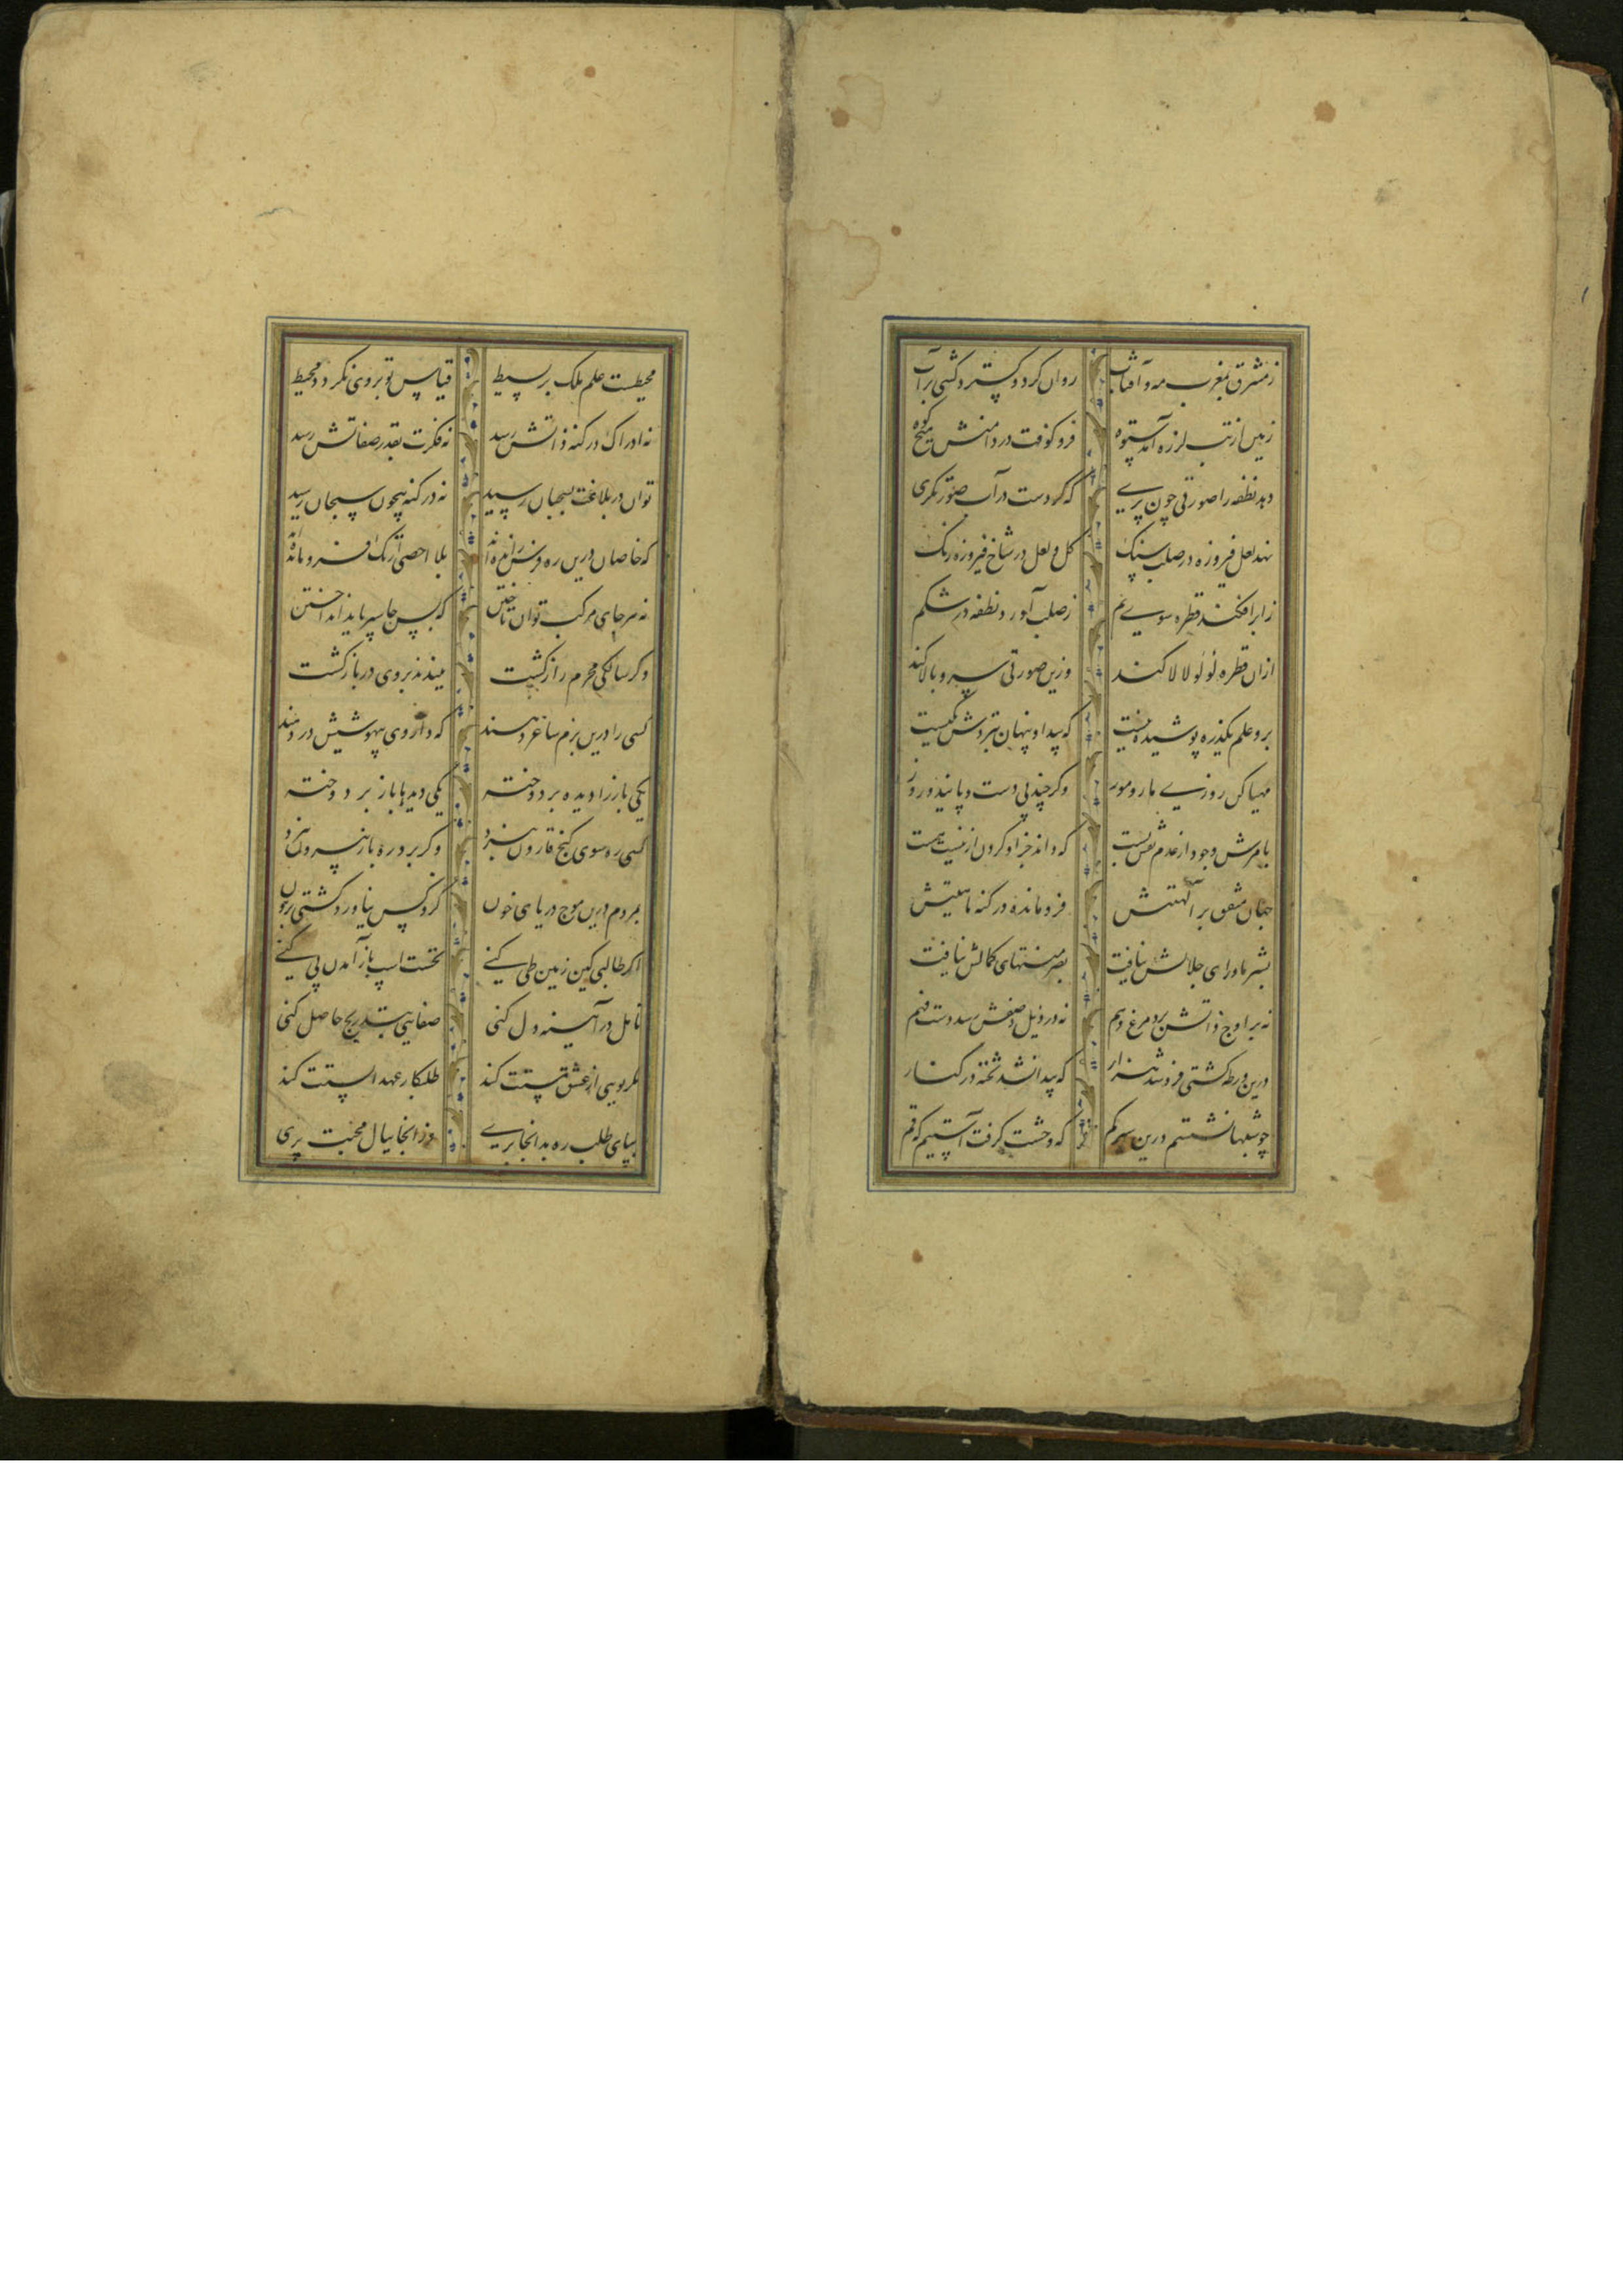 ز مشرق بمغرب مه و آفتاب روان کرد و گسترد گیتی بر آب
زمین از تب لرزه آمد ستوه فرو کوفت در دامنش میخ کوه
دهد نطفه را صورتی چون پری که کردست در آب صورتگری
نهد لعل فیروزه در صلب سنگ گل و لعل در شاخ فیروزه رنگ
ز ابر افکند قطره سوی یم ز صلب آورد نطفه در شکم
از ان قطره لولو لالا کند وزین صورتی سرو بالا کند
برو علم یکذره پوشیده نیست که پیدا و پنهان بنزدش یکیست
مهیا کن روزی مار و مور وگر چند بی دست و پایند و زور
بامرش وجود از عدم نقش بست که داند جز او کردن از نیست هست
جهان متفق بر الهیتش فرو مانده در کنه ماهیتش
بشر ماورای جلالش نیافت بصر منتهای کمالش نیافت
نه بر اوج ذاتش پرد مرغ وهم نه در ذیل وصفش رسد دست فهم
درین ورطه کشتی فرو شد هزار که پیدا نشد تخته در کنار
چو شبها نشستم درین سیر گم که وحشت گرفت آستینم که قم
محیطست علم ملک بر بسیط قیاس تو بر وی نگردد محیط
نه ادراک در کنه ذاتش رسد نه فکرت بقدر صفاتش رسد
توان در بلاغت بسحبان رسید نه در کنه بیچون سبحان رسید
که خاصان درین ره فرس رانده اند بلا احصی از تک فرو مانده اند
نه هر جای مرکب توان تاختن که بس جا سپر باید انداختن
وگر سالکی محرم راز گشت ببندند بر وی در بازگشت
کسی را درین بزم ساغر دهند که داروی بیهوشیش در دهند
یکی باز را دیده بر دوخته یکی دیدها باز بر دوخته
کسی ره سوی گنج قارون نبرد وگر برد ره باز بیرون نبرد
بمردم درین موج دریای خون کزو کس نیاورد کشتی برون
اگر طالبی کین زمین طی کنی نخست اسپ باز آمدن پی کنی
تامل در آیینه دل کنی صفایی بتدریج حاصل کنی
مگر بویی از عشق مستت کند طلبکار عهد الستت کند
بپای طلب ره بدانجا بری وز انجا ببال محبت پری